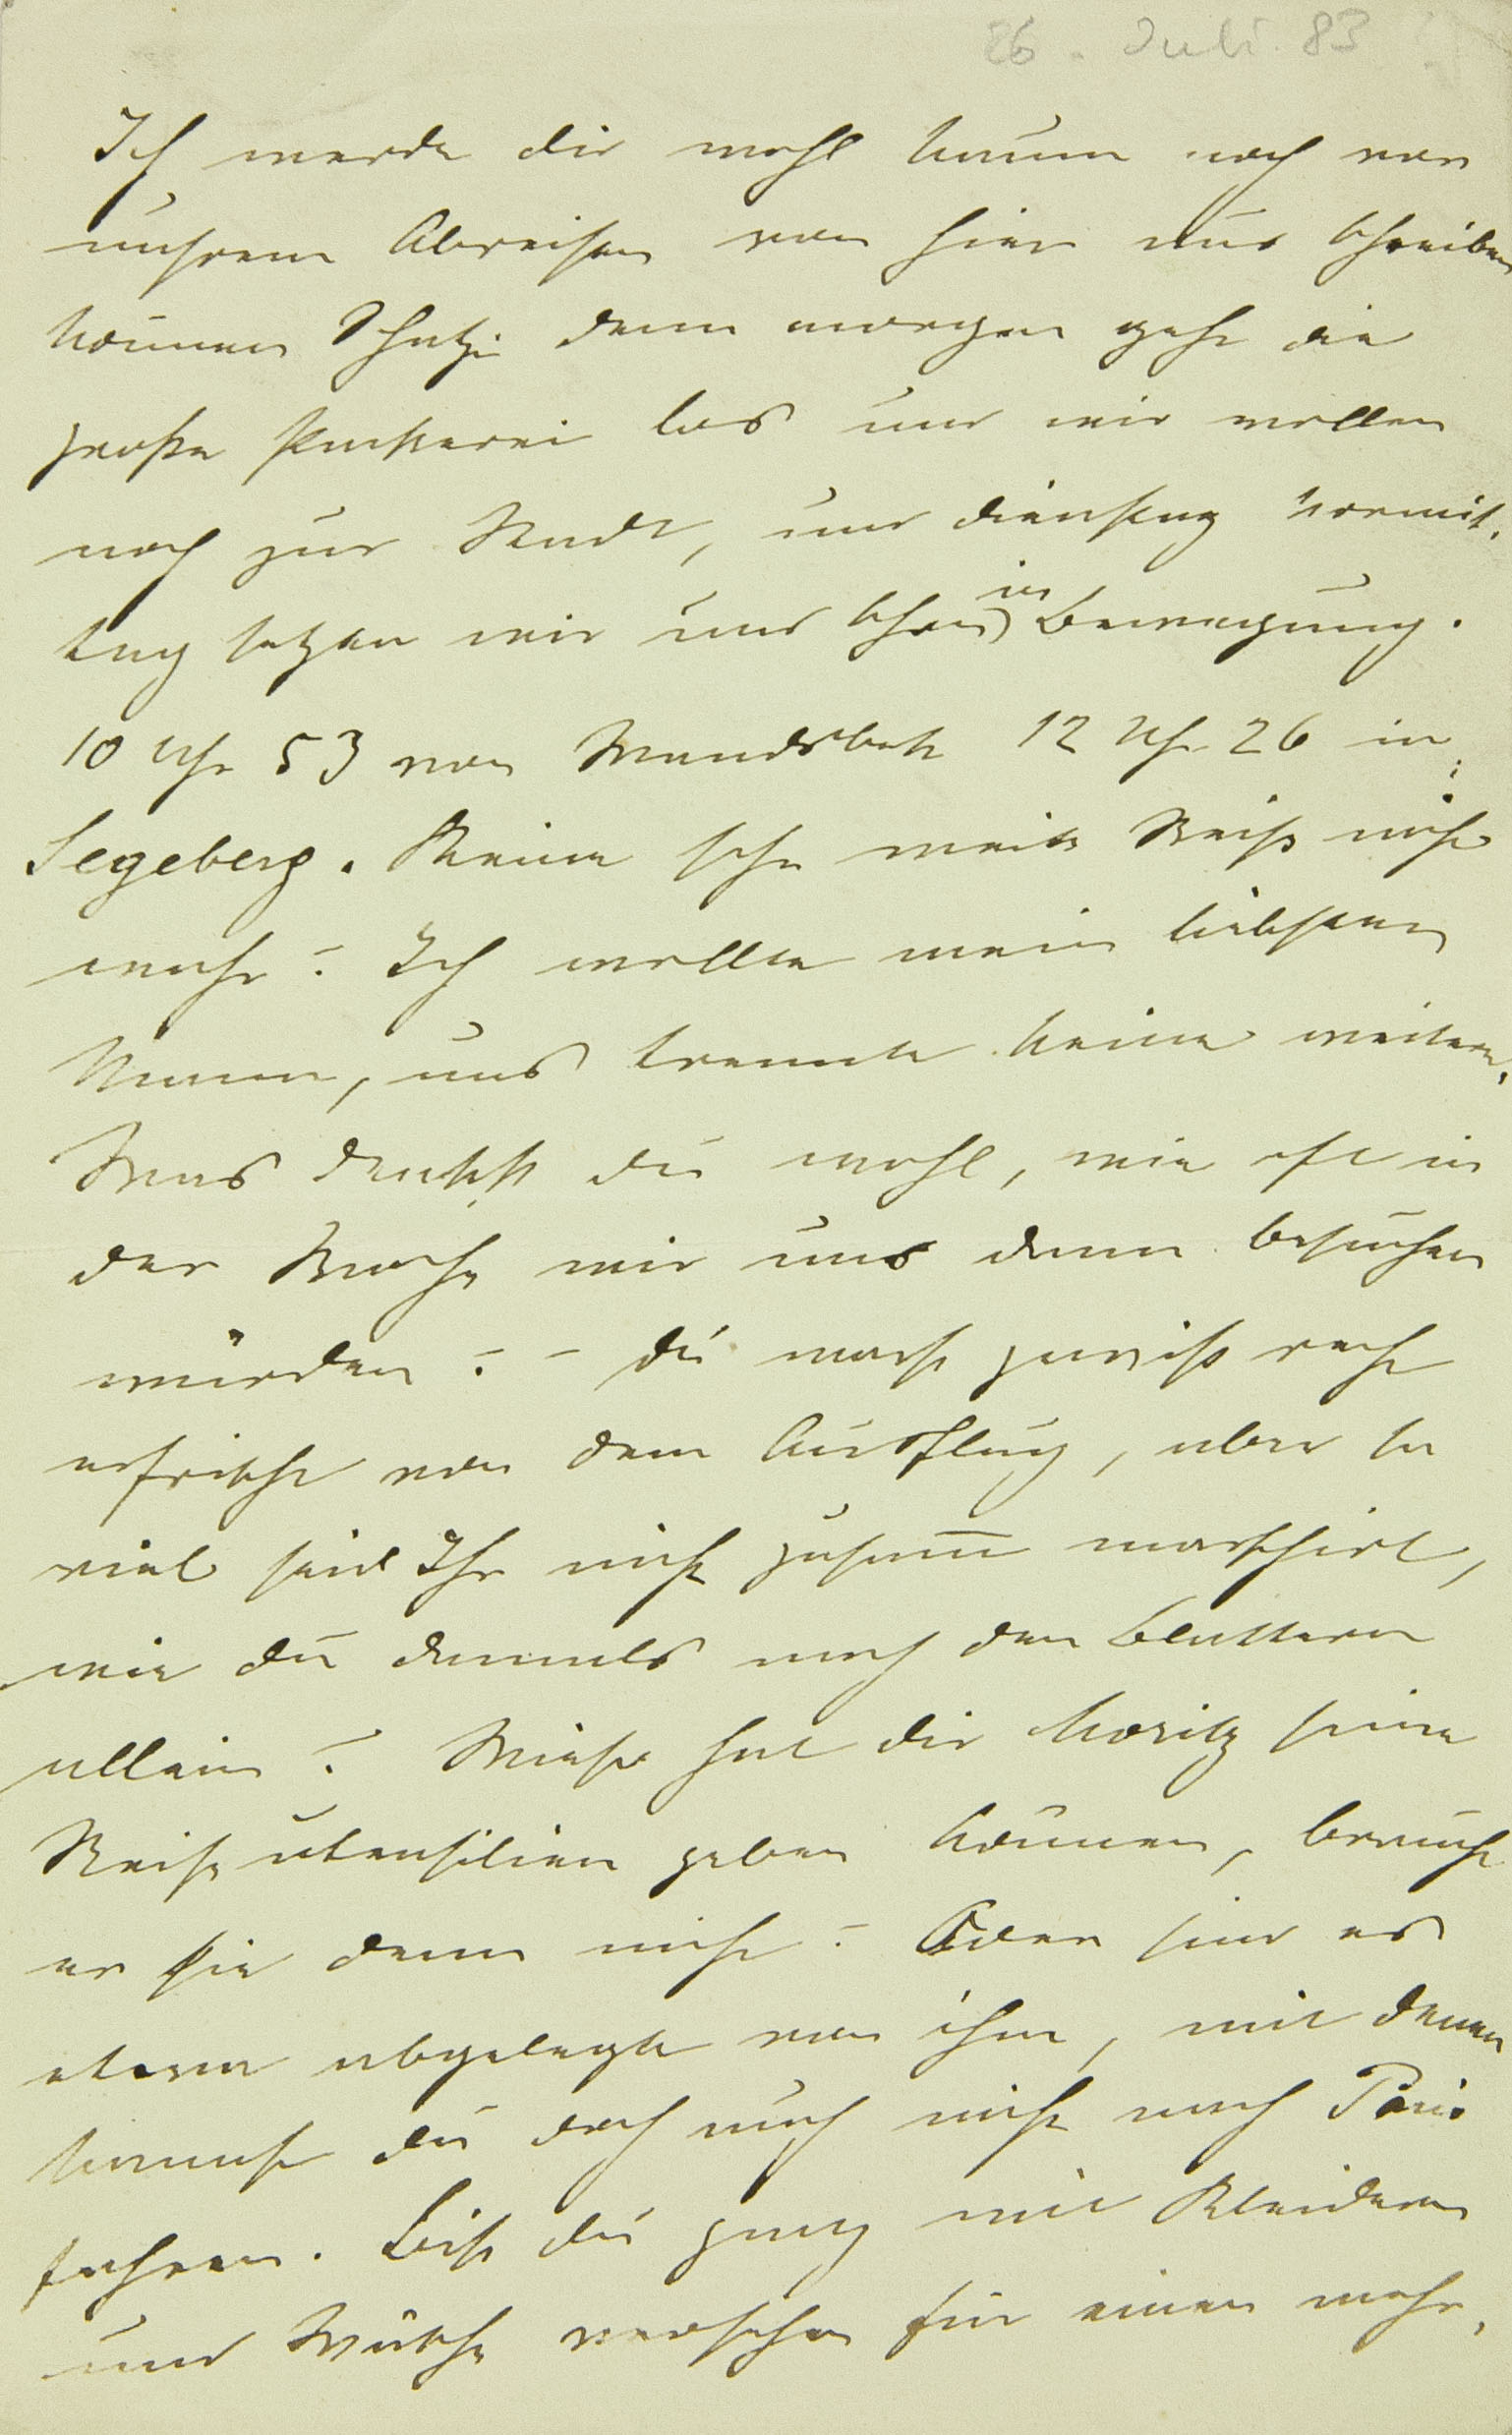 26. Juli. 83
Ich werde dir wohl kaum noch von
unserem Abreisen von hier aus schreiben
können Schatzi denn morgen geht die
große Packerei los und wir wollen
noch zur Stadt, und dienstag vormit-
tag setzen wir uns schon in Bewegung.
10 Uhr 53 von Wandsbek 12 Uhr 26 in
Segeberg. Keine sehr weite Reise nicht
wahr? Ich wollte mein liebster
Mann, uns trennte keine weitere.
Was denkst du wohl, wie oft in
der Woche wir uns dann besuchen
würden? – du warst gewiß recht
erfrischt von dem Ausflug, aber so
viel seid Ihr nicht zusamm̅ marschirt,
wie du damals nach den Blattern
allein? Wieso hat dir Moritz seine
Reiseutensilien geben können, braucht
er sie denn nicht? Oder sind es
etwa abgelegte von ihm, mit denen
kannst du doch auch nicht nach Paris
fahren. Bist du ganz mit Kleidern
und Wäsche versehen für einen mehr-